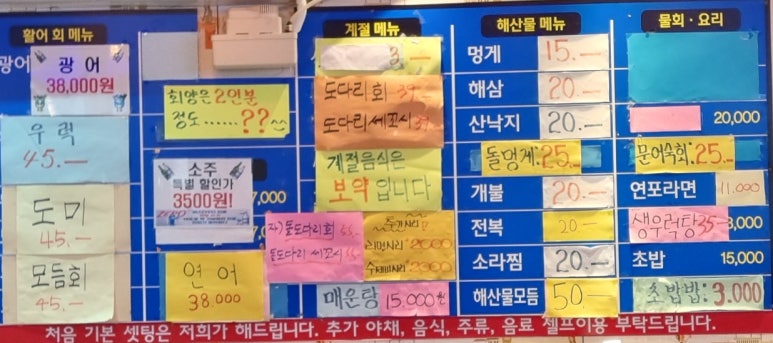 활어 회 메뉴
광어
광 어
38,000원
우럭
45.—
도미
45.—
모듬회
45.—
회양은 2인분
정도......??
소주
특별 할인가
3500원!
7,000
연어
38.000
계절 메뉴
도다리회 39.—
도다리세꼬시 39
계절음식은
보약입니다
자) 돌도다리회 55.—
돌도다리 세꼬시 55.—
라면사리 2000
수제비사리 2000
매운탕 15,000원
해산물 메뉴
멍게 15.—
해삼 20.—
산낙지 20.—
돌멍게 25.—
개불 20.—
전복 20.—
소라찜 20.—
해산물모듬 50.—
물회 · 요리
20,000
문어숙회 25.—
연포라면 11,000
생우럭탕 35.— 3,000
초밥 15,000
초밥밥: 3.000
처음 기본 셋팅은 저희가 해드립니다. 추가 야채, 음식, 주류, 음료 셀프이용 부탁드립니다.